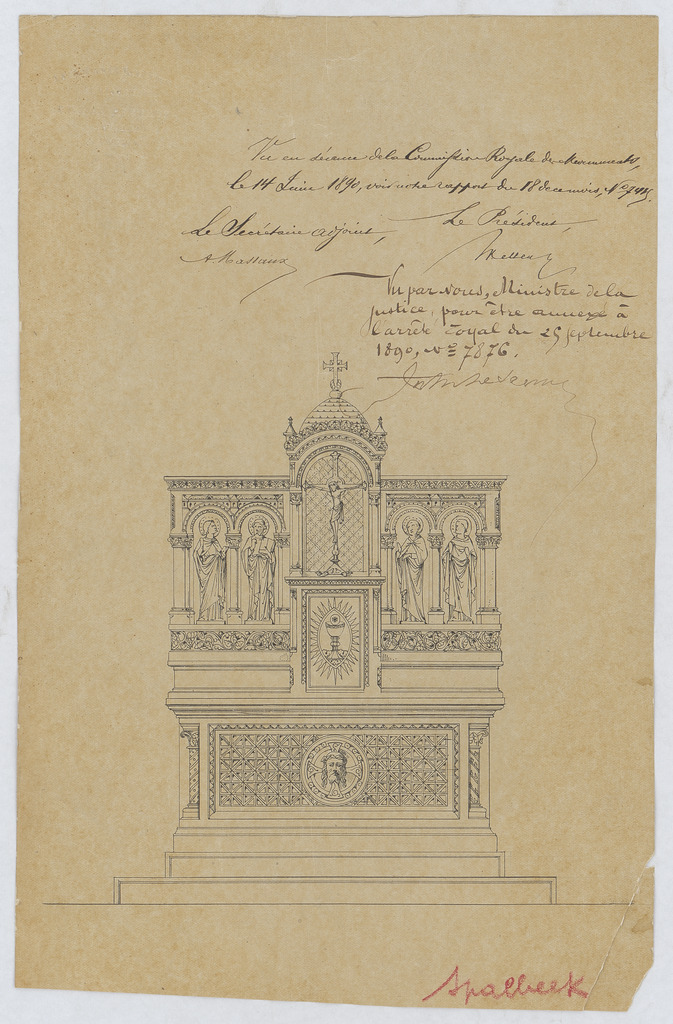 Vu en séance de la Commission Royale des Monuments,
le 14 Juin 1890, voir notre rapport du 18 décembre, Nº
Le Secrétaire adjoint,
Le Président,
A. Massaux
Vu par nous, Ministre de la
justice, pour être annexé à
l'arrêté royal du 25 septembre
1890, Nº 7876.
Spalbeek